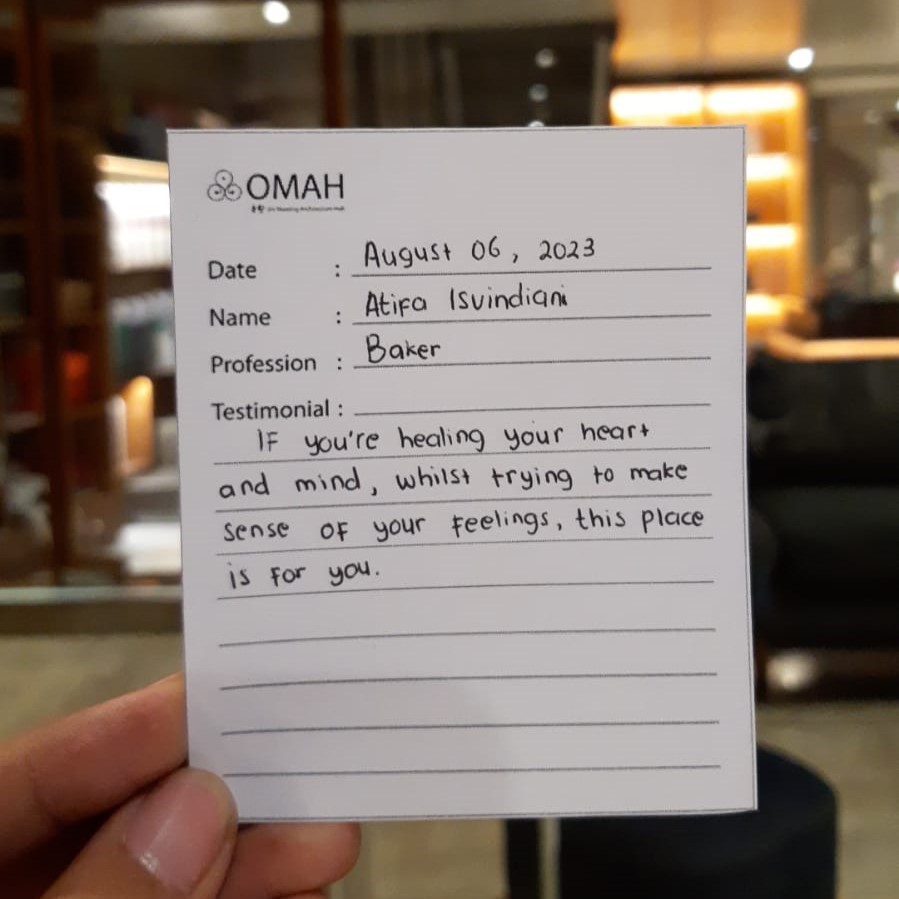 OMAH
Date : August 06, 2023
Name : Atifa Isvindiani
Profession : Baker
Testimonial :
If you're healing your heart
and mind, whilst trying to make
sense of your feelings, this place
is for you.